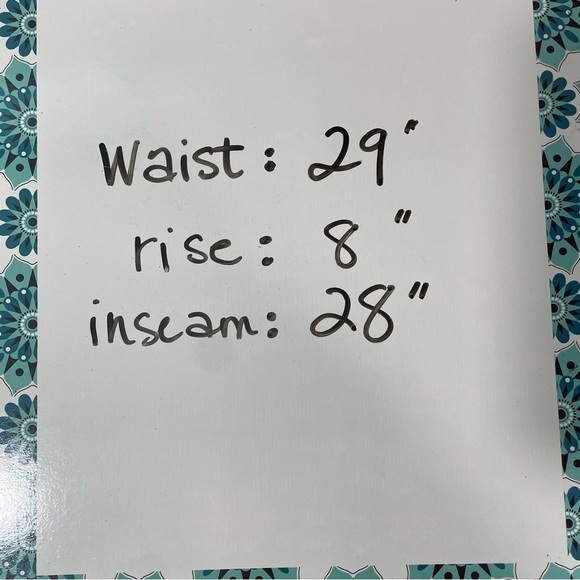 Waist: 29"
rise: 8"
inseam: 28"